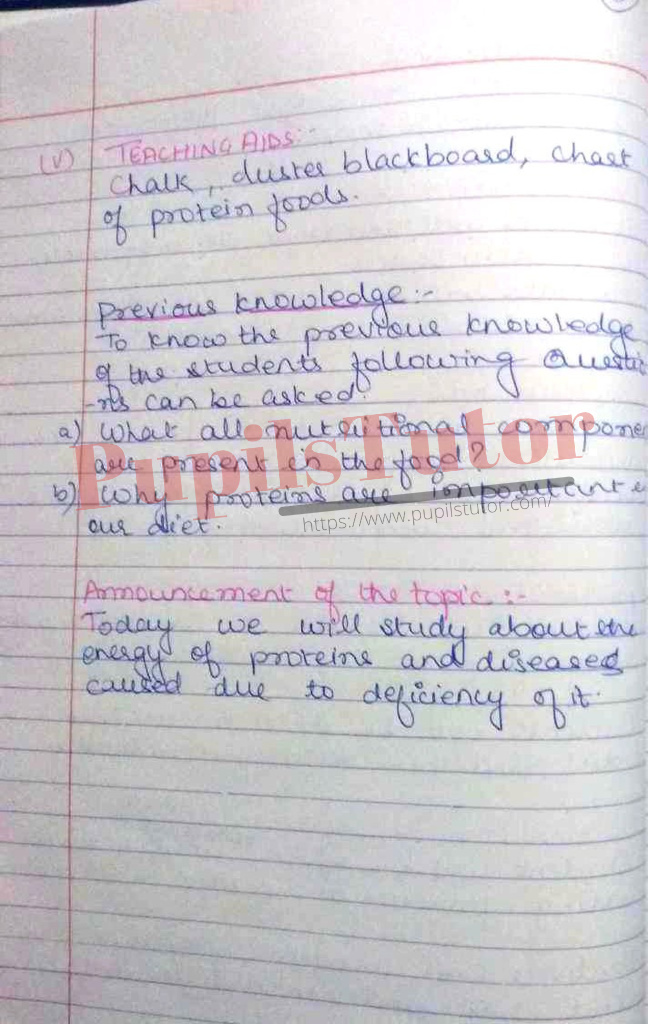 (V) TEACHING AIDS:-
Chalk, duster blackboard, chart
of protein foods.
Previous knowledge:-
To know the previous knowledge
of the students following Questi
-ns can be asked.
a) What all nutritional compone
are present in the food?
b) Why proteins are important
our diet.
PupilsTutor
https://www.pupilstutor.com/
Announcement of the topic:-
Today we will study about the
energy of proteins and diseases
caused due to deficiency of it.